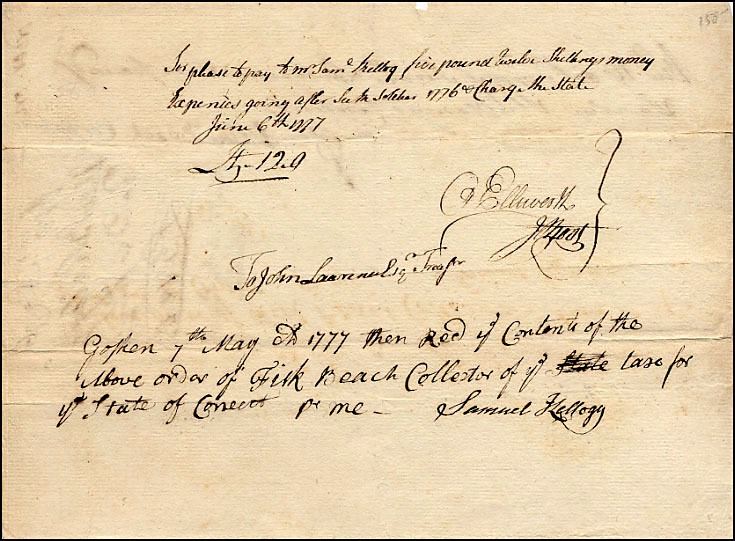 150
Sir please to pay to mr. Sam.l Kellog five pound Twelve Shillings money
Expenies going after Sick Soldier 1776 & Charge the State
June 6th 1777
£5-12.0
O Ellsworth
J Root
To John Lawrence Esq.r Treasr
Goshen 7th May AD 1777 then Recd ye Contents of the
Above order of Fisk Beach Collector of ye State taxe for
ye State of Connectt pr me - Samuel Kellogg